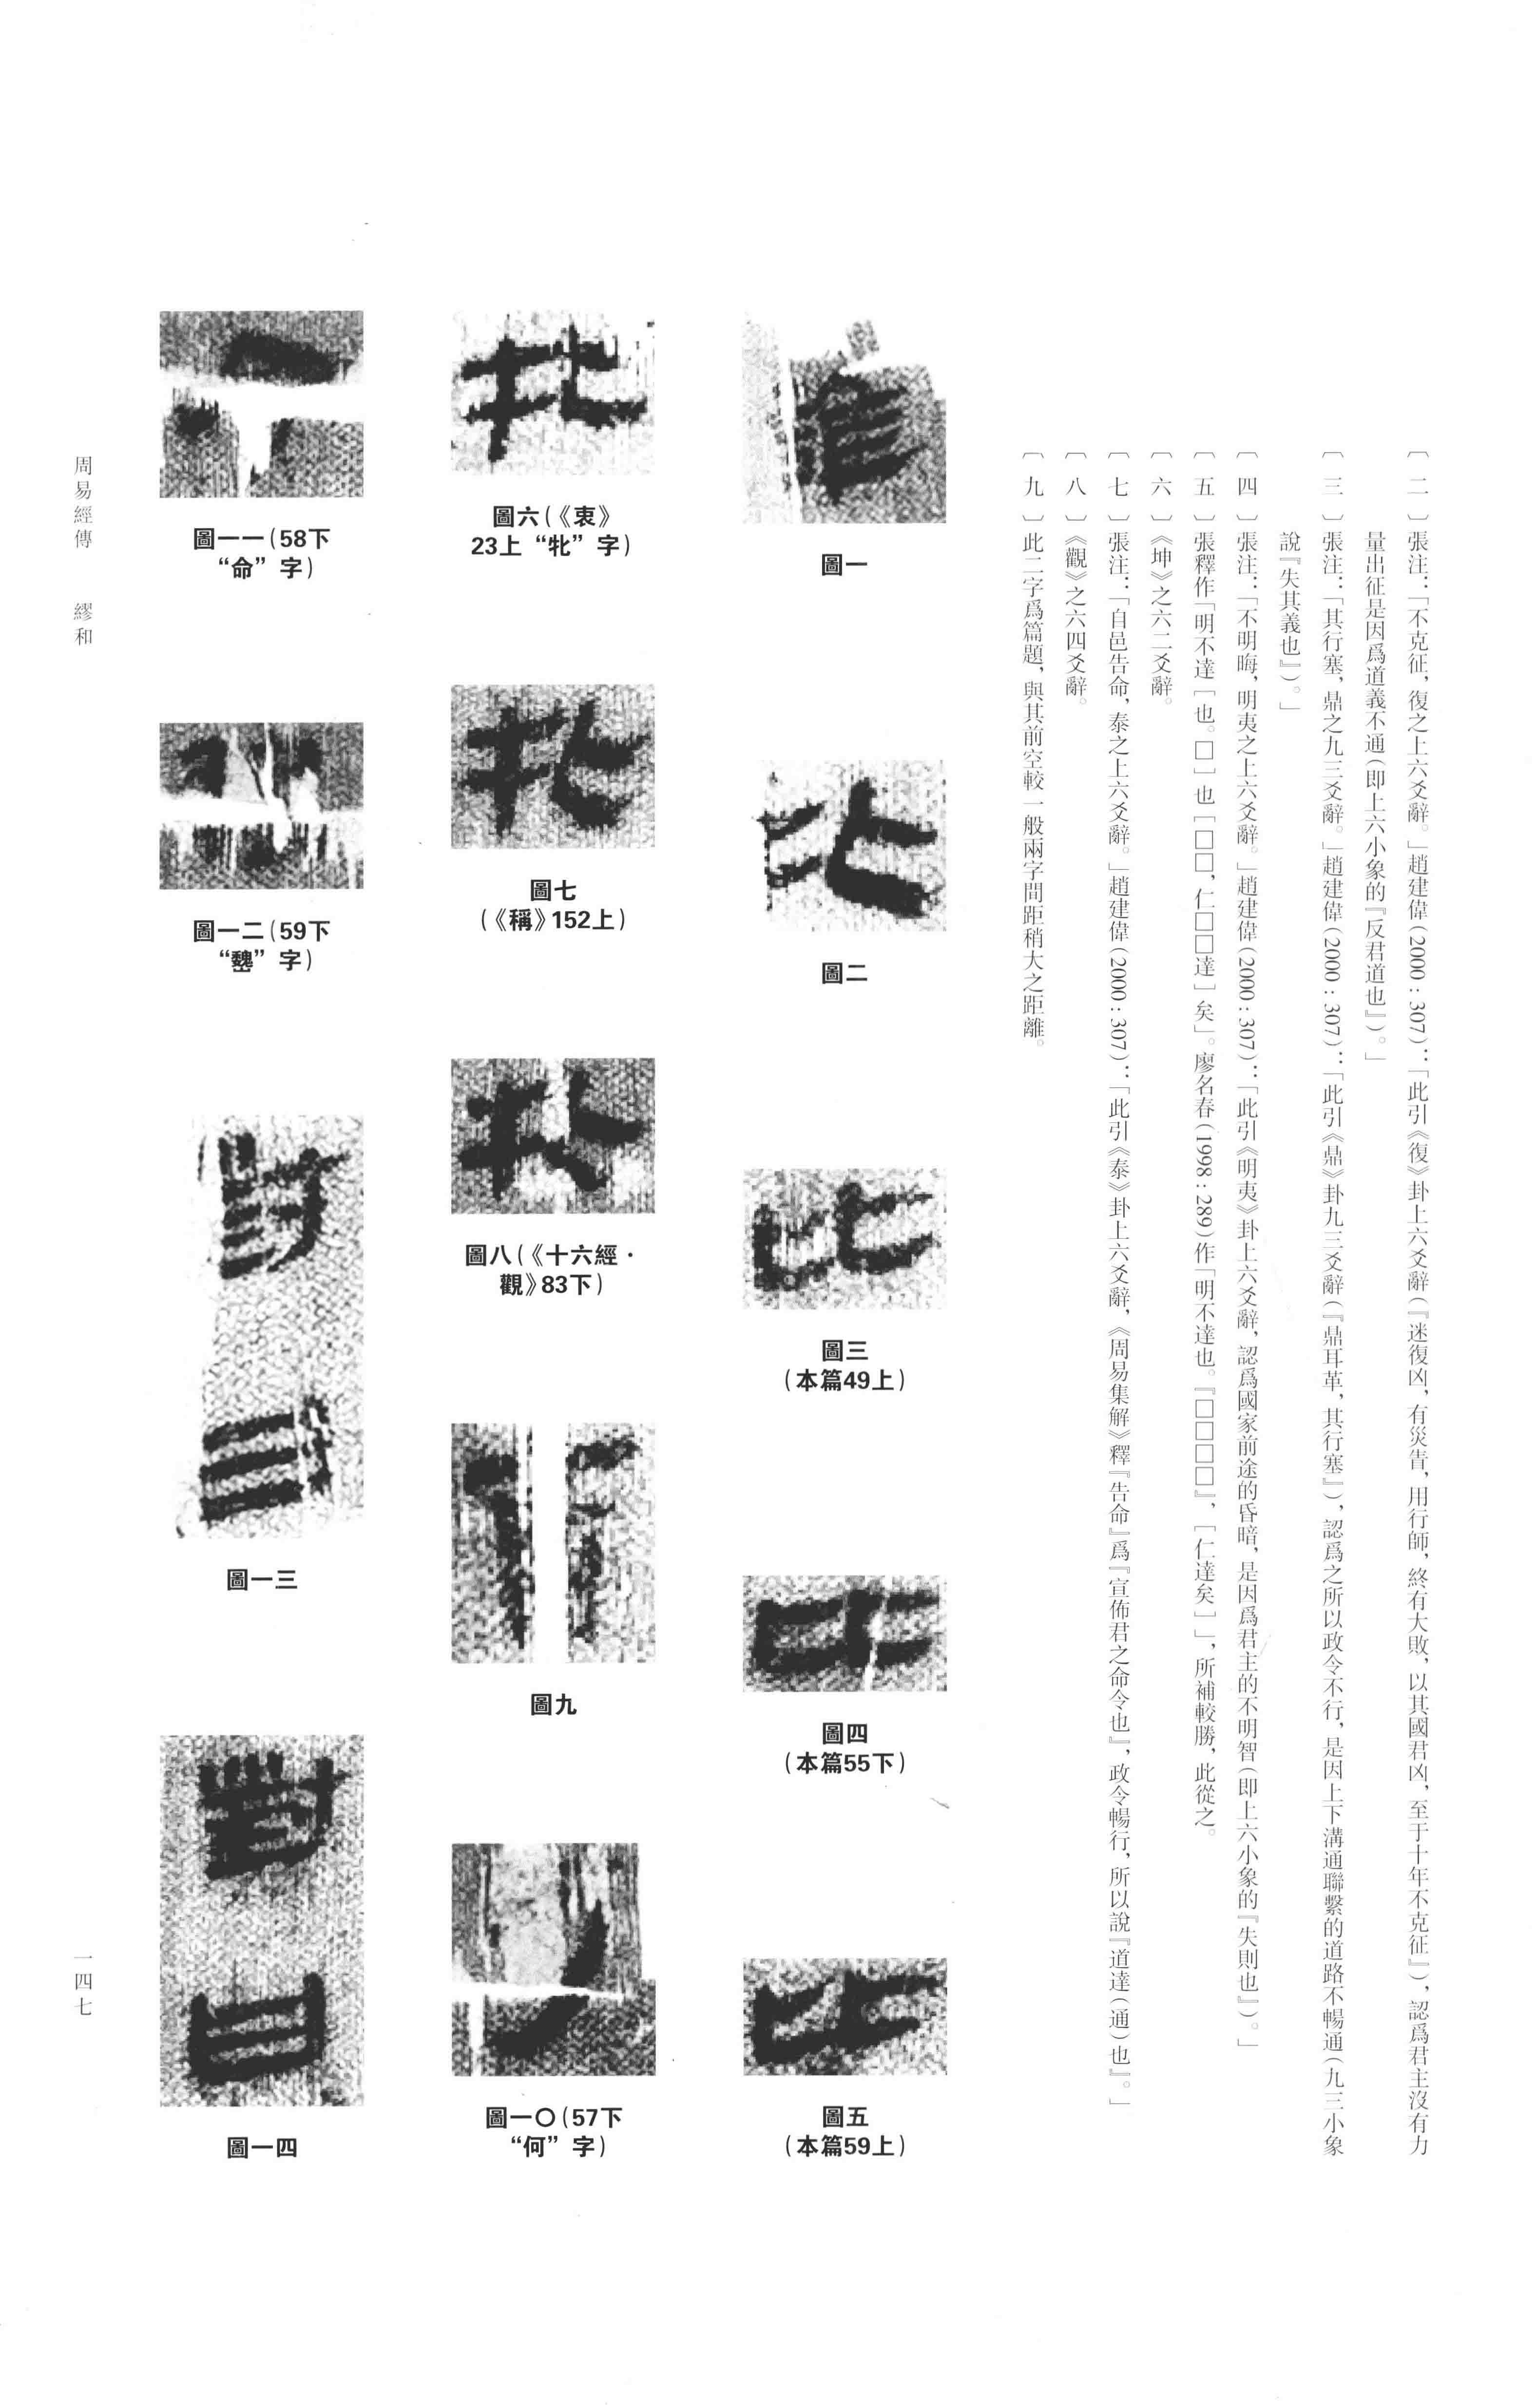 〔二〕張注：「不克征，復之上六爻辭。」趙建偉（2000：307）：「此引《復》卦上六爻辭（『迷復凶，有災眚，用行師，終有大敗，以其國君凶，至于十年不克征』），認爲君主沒有力
量出征是因爲道義不通（即上六小象的『反君道也』）。」
〔三〕張注：「其行塞，鼎之九三爻辭。」趙建偉（2000：307）：「此引《鼎》卦九三爻辭（『鼎耳革，其行塞』），認爲之所以政令不行，是因上下溝通聯繫的道路不暢通（九三小象
說『失其義也』）。」
〔四〕張注：「不明晦，明夷之上六爻辭。」趙建偉（2000：307）：「此引《明夷》卦上六爻辭，認爲國家前途的昏暗，是因爲君主的不明智（即上六小象的『失則也』）。」
〔五〕張釋作「明不達［也。□］也［□□，仁□□達］矣」。廖名春（1998：289）作「明不達也。『□□□□』，［仁達矣］」，所補較勝，此從之。
〔六〕《坤》之六二爻辭。
〔七〕張注：「自邑告命，泰之上六爻辭。」趙建偉（2000：307）：「此引《泰》卦上六爻辭，《周易集解》釋『告命』爲『宣佈君之命令也』，政令暢行，所以說『道達（通）也』。」
〔八〕《觀》之六四爻辭。
〔九〕此二字爲篇題，與其前空較一般兩字間距稍大之距離。
圖一
圖二
圖三
（本篇49上）
圖四
（本篇55下）
圖五
（本篇59上）
圖六（《衷》
23上“牝”字）
圖七
（《稱》152上）
圖八（《十六經·
觀》83下）
圖九
圖一〇（57下
“何”字）
圖一一（58下
“命”字）
圖一二（59下
“魏”字）
圖一三
圖一四
周易經傳 繆和
一四七